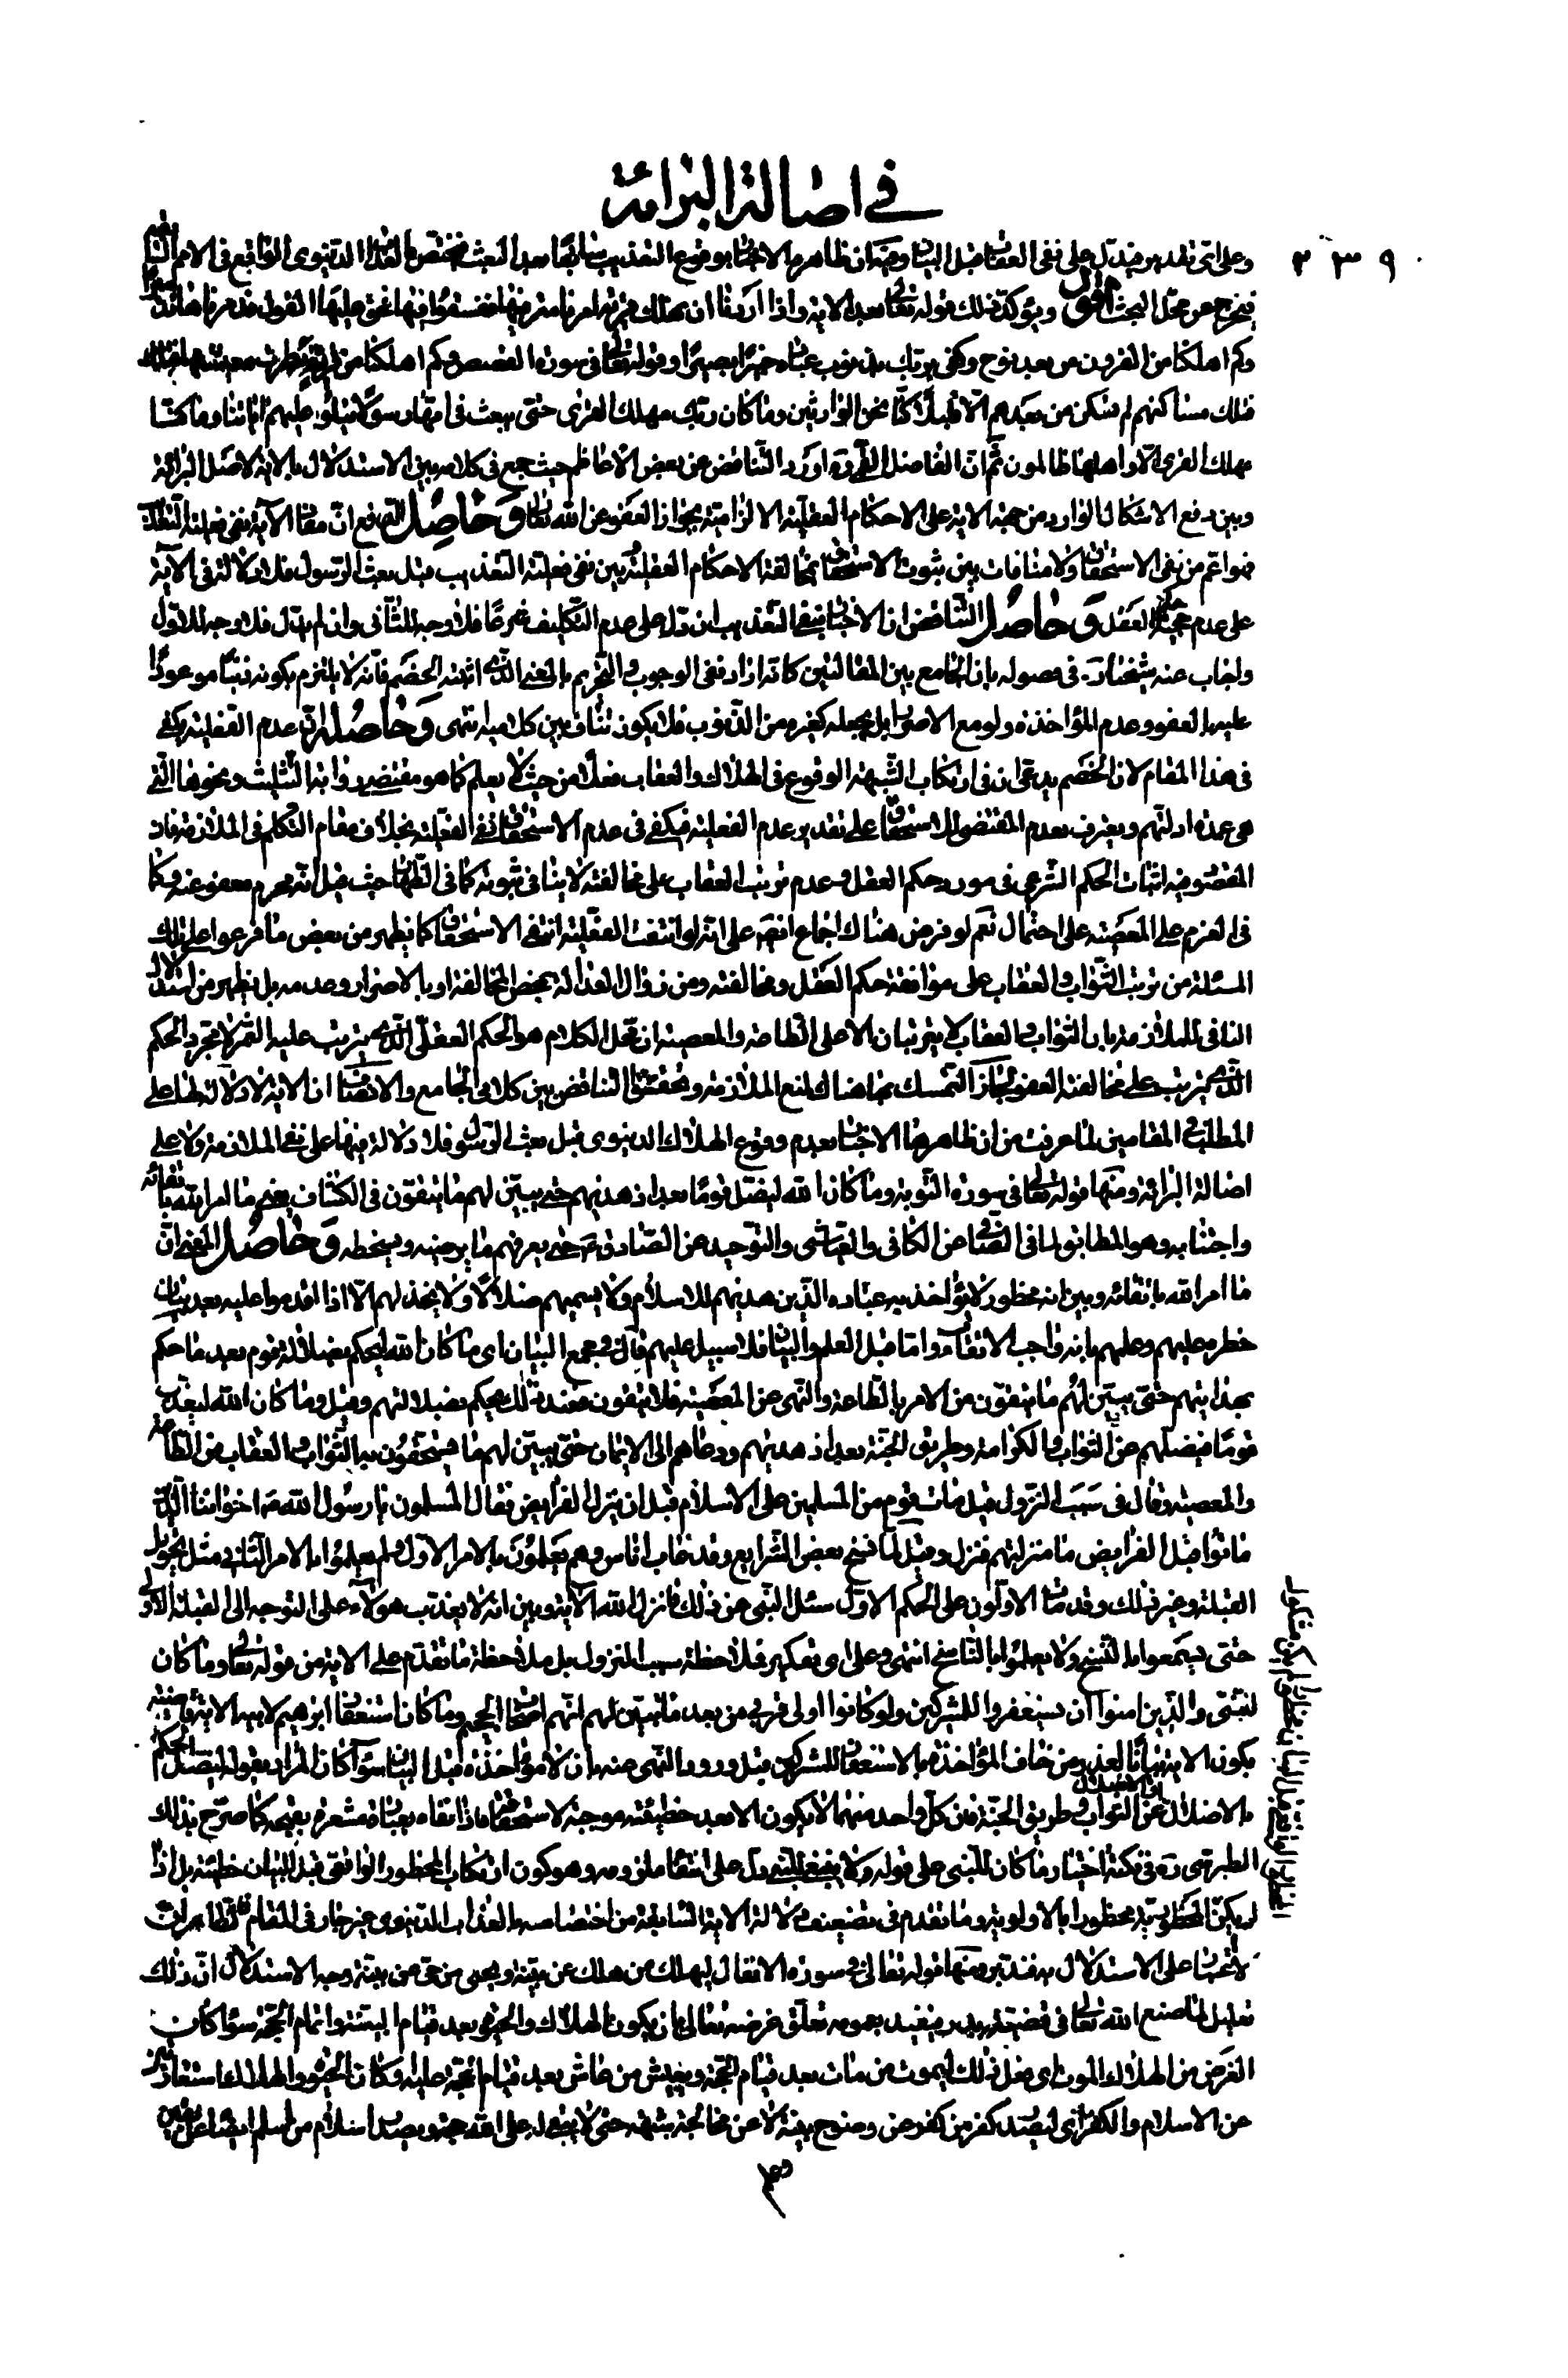 في اصالة البرائة
٢٣٩
وعلى اى تقدير فيدل على نفى العقاب قبل البيان وفيه ان ظاهره الاخبار بوقوع التعذيب سابقا بعد البعث فيختص بالعذاب الدنيوى الواقع فى الامم السابقة
فيخرج عن محل البحث اقول ويؤكد ذلك قوله تعالى بعد الاية واذا اردنا ان نهلك قرية امرنا مترفيها ففسقوا فيها فحق عليها القول فدمرناها تدميرا
وكم اهلكنا من القرون من بعد نوح وكفى بربك بذنوب عباده خبيرا بصيرا وقوله تعالى فى سورة القصص وكم اهلكنا من قرية بطرت معيشتها
فتلك مساكنهم لم تسكن من بعدهم الا قليلا وكنا نحن الوارثين وما كان ربك مهلك القرى حتى يبعث فى امها رسولا يتلوا عليهم اياتنا وما كنا
مهلك القرى الا واهلها ظالمون ثم ان الفاضل القمى ره اورد التناقض عن بعض الاعاظم حيث جمع فى كلامه بين الاستدلال بالاية لاصل البرائة
وبين دفع الاشكال الوارد من جهة الاية على الاحكام العقلية الالزامية بجواز العفو عن الله تعالى وحاصل الدفع ان مفاد الاية نفى فعلية التعذيب
فهو اعم من نفى الاستحقاق ولا منافات بين ثبوت الاستحقاق بمخالفة الاحكام العقلية وبين نفى فعلية التعذيب قبل بعث الرسول فلا دلالة فى الآية
على عدم حجية حكم العقل وحاصل التناقض ان الاخبار بنفى التعذيب ان دل على عدم التكليف شرعا فلا وجه للثانى وان لم يدل فلا وجه للاول
واجاب عنه شيخنا ره فى فصوله بان الجامع بين المقالتين كانه اراد نفى الوجوب والتحريم بالمعنى الذى اثبته الخصم فانه لا يلتزم بكونه ذنبا موعودا
عليه العفو وعدم المؤاخذة ولو مع الاصرار بل يجعله كغيره من الذنوب فلا يكون تناف بين كلاميه انتهى وحاصله ان عدم الفعلية يكفى
فى هذا المقام لان الخصم يدعى ان فى ارتكاب الشبهة الوقوع فى الهلاك والعقاب فعلا من حيث لا يعلم كما هو مقتضى رواية التثليث ونحوها التى
هى عمدة ادلتهم ويعترف بعدم المقتضى للاستحقاق على تقدير عدم الفعلية فيكفى فى عدم الاستحقاق نفى الفعلية بخلاف مقام التكلم فى الملازمة فان
المقصود فيه اثبات الحكم الشرعى فى مورد حكم العقل وعدم ترتب العقاب على مخالفته لا ينافى ثبوته كما فى الظهار حيث قيل انه محرم معفو عنه وكما
فى العزم على المعصية على احتمال نعم لو فرض هناك اجماع انتهى على انه لو انتفت الفعلية انتفى الاستحقاق كما يظهر من بعض ما فرعوا على تلك
المسئلة من ترتب الثواب والعقاب على موافقة حكم العقل ومخالفته ومن زوال العدالة بمحض المخالفة او بالاصرار وعدمه بل يظهر من استدلال
النافى للملازمة بان الثواب والعقاب لا يترتبان الا على الطاعة والمعصية ان محل الكلام هو الحكم العقلى الذى يترتب عليه الثمرة لا مجرد الحكم
الذى يترتب على مخالفته العفو لجاز التمسك بها هناك لمنع الملازمة وتحقق التناقض بين كلامى الجامع والانصاف ان الاية لا دلالة لها على
المطلب فى المقامين لما عرفت من ان ظاهرها الاخبار بعدم وقوع الهلاك الدنيوى قبل بعث الرسول فلا دلالة فيها على نفى الملازمة ولا على
اصالة البرائة ومنها قوله تعالى فى سورة التوبة وما كان الله ليضل قوما بعد اذ هديهم حتى يبين لهم ما يتقون فى الكشاف يعنى ما امر الله باتقائه
واجتنابه وهو المطابق لما فى الصافى عن الكافى والعياشى والتوحيد عن الصادق ع حتى يعرفهم ما يرضيه وسخطه وحاصل المعنى ان
ما امر الله باتقائه وبين انه محظور لا يؤاخذ به عباده الذين هديهم للاسلام ولا يسميهم ضلالا ولا يخذلهم الا اذا اقدموا عليه بعد بيان
حظره عليهم وعلمهم بانه واجب الاتقاء واما قبل العلم والبيان فلا سبيل عليهم قال فى مجمع البيان اى ما كان الله ليحكم بضلالة قوم بعد ما حكم
بهدايتهم حتى يبين لهم ما يتقون من الامر بالطاعة والنهى عن المعصية فلا يتقون فعند ذلك يحكم بضلالتهم وقيل وما كان الله ليعذب
قوما فيضلهم عن الثواب والكرامة وطريق الجنة بعد اذ هديهم ودعاهم الى الايمان حتى يبين لهم ما يستحقون به الثواب والعقاب من الطاعة
والمعصية وقال فى سبب النزول قيل مات قوم من المسلمين على الاسلام قبل ان ينزل الفرايض فقال المسلمون يا رسول الله ص اخواننا الذين
ماتوا قبل الفرايض ما منزلتهم فنزل وقيل لما نسخ بعض الشرايع وقد غاب اناس وهم يعملون بالامر الاول ولم يعلموا بالامر الثانى مثل تحويل
القبلة وغير ذلك وقد مات الاولون على الحكم الاول سئل النبى عن ذلك فانزل الله الاية وبين انه لا يعذب هؤلاء على التوجه الى القبلة الاولى
حتى يسمعوا بالنسخ ولا يعلموا بالناسخ انتهى وعلى اى تقدير فملاحظة سبب النزول بل ملاحظة ما تقدم على الاية من قوله تعالى وما كان
للنبى والذين امنوا ان يستغفروا للمشركين ولو كانوا اولى قربى من بعد ما تبين لهم انهم اصحاب الجحيم وما كان استغفار ابرهيم لابيه الاية قاضية
بكون الاية بيانا لعذر من خاف المؤاخذة بالاستغفار للمشركين قبل ورود النهى عنه بان لا مؤاخذة قبل البيان سواء كان المراد بقوله ليضل الحكم
بالاضلال او الاضلال عن الثواب وطريق الجنة فان كل واحد منهما لا يكون الا بعد خطيئة موجبة لاستحقاقها
الطبرسى ره فى نكتة اختيار ما كان للنبى على قوله ولا ينبغى للنبى
لم يكن المحظور
لاتمان على الاستدلال به فتدبر ومنها قوله تعالى فى سورة الانفال ليهلك من هلك عن بينة ويحيى من حى عن بينة وجه الاستدلال ان ذلك
تعليل لما صنع الله تعالى فى قضية بدر فيفيد بعمومه تعلق غرضه تعالى بان يكون الهلاك والحيوة بعد قيام البينة واتمام الحجة سواء كان
الغرض من الهلاك الموت اى فعل ذلك ليموت من مات بعد قيام الحجة ويعيش من عاش بعد قيام الحجة عليه او كان الحيوة والهلاك استعارتين
عن الاسلام والكفر اى ليصدر كفر من كفر عن وضوح بينة لا عن مخالجة شبهة حتى لا يبقى له على الله حجة ويصدر اسلام من اسلم ايضا عن يقين